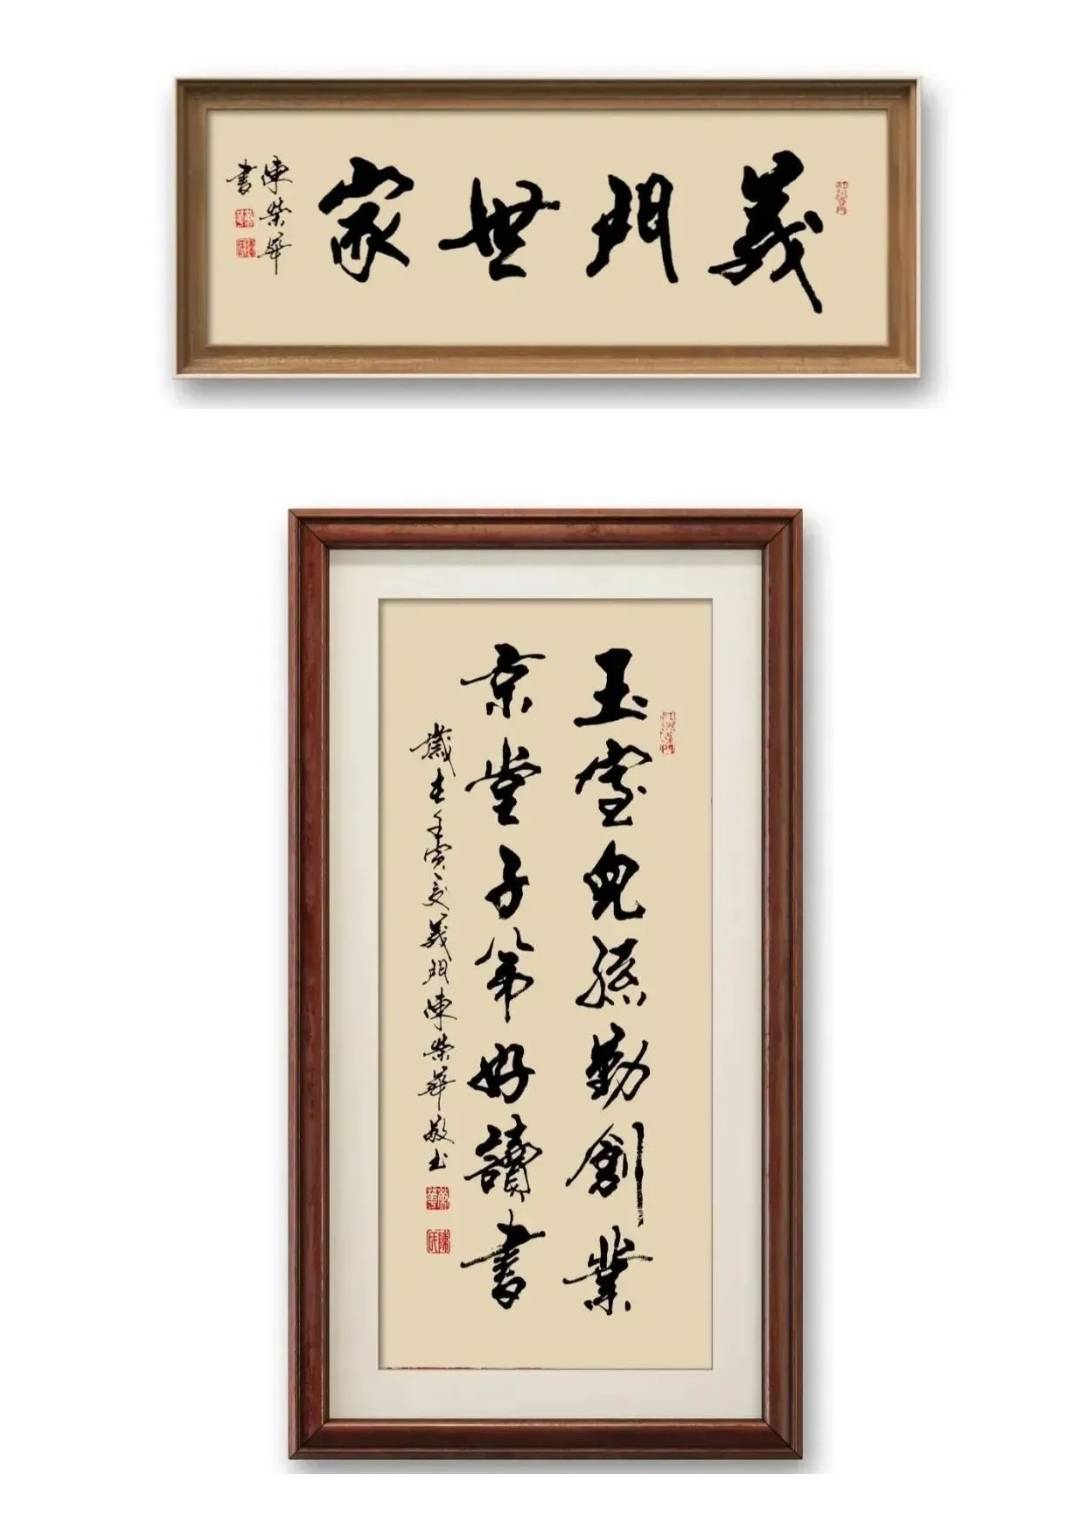 義門世家
陳榮華
書
玉室兒孫勤創業
京堂子弟好讀書
歲在壬寅之夏義門陳榮華敬書